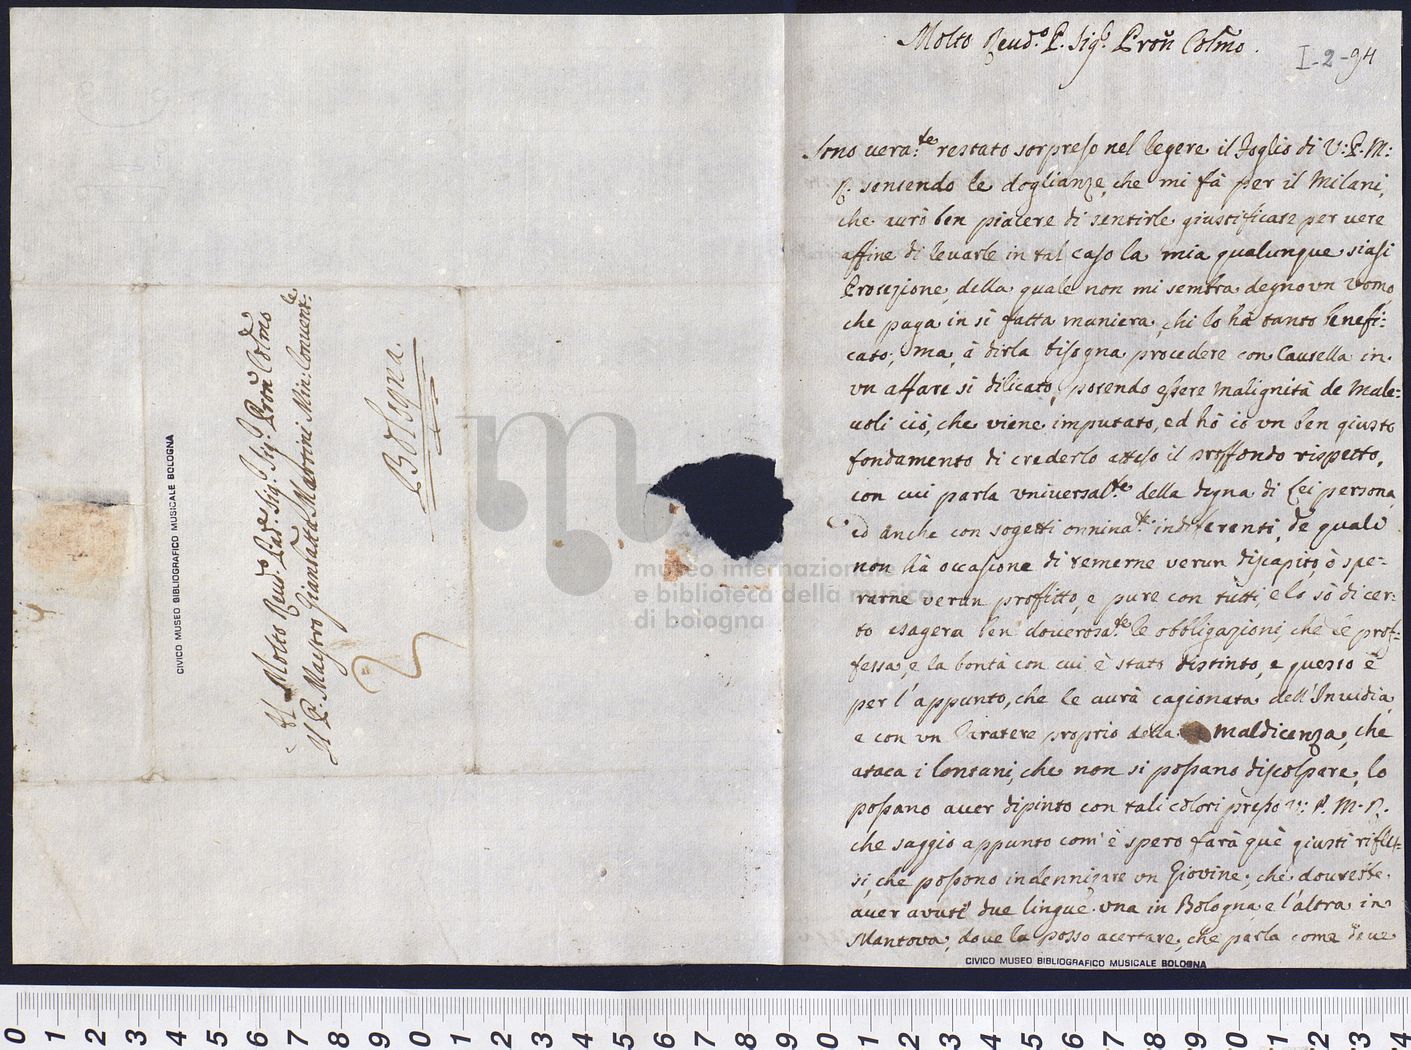 Al Molto Reud.o Pad.e Sig.r Sig.r Pron Colmo
Il P. Maestro Giambatta Martini Min: Conuent:le
Bologna.
CIVICO MUSEO BIBLIOGRAFICO MUSICALE BOLOGNA
museo internazionale
e biblioteca della musica
di bologna
Molto Reud.o P. Sig.r Pron Colmo.
I-2-94
Sono vera:te restato sorpreso nel legere il Foglio di V: P. M:
R. sentendo le doglianze, che mi fà per il Milani,
che aurò ben piacere di sentirle giustificate per vere
affine di leuarle in tal caso la mia qualunque siasi
Protezione, della quale non mi sembra degno vn Vomo
che paga in si fatta maniera, chi lo hà tanto benefi:
cato; ma, à dirla bisogna procedere con Cautella in
vn affare si dilicato, potendo essere malignità de Male:
uoli ciò, che viene imputato, ed hò io vn ben giusto
fondamento di crederlo atteso il proffondo rispetto,
con cui parla vniversal:te della degna di Lei persona,
ed anche con sogetti onnina:te indifferenti, de quali
non hà occasione di temerne verun discapito, ò spe-
rarne verun proffitto, e pure con tutti, e lo sò di cer-
to esagera ben douerosa:te le obbligazioni, che le prof-
fessa, e la bontà con cui è stato distinto, e questo è
per l'appunto, che le aurà cagionata dell'Inuidia,
e con vn Caratere proprio della maldicenza, che
ataca i lontani, che non si possano discolpare, lo
possano auer dipinto con tali colori presso V: P. M. R.
che saggio appunto com' è spero farà què giusti rifles-
si, che possono indennizare vn Giovine, che dourebbe
auer avuti due lingue vna in Bologna, e l'altra in
Mantova, doue la posso acertare, che parla come deue
CIVICO MUSEO BIBLIOGRAFICO MUSICALE BOLOGNA
0 1 2 3 4 5 6 7 8 9 0 1 2 3 4 5 6 7 8 9 0 1 2 3 4 5 6 7 8 9 0 1 2 3 4